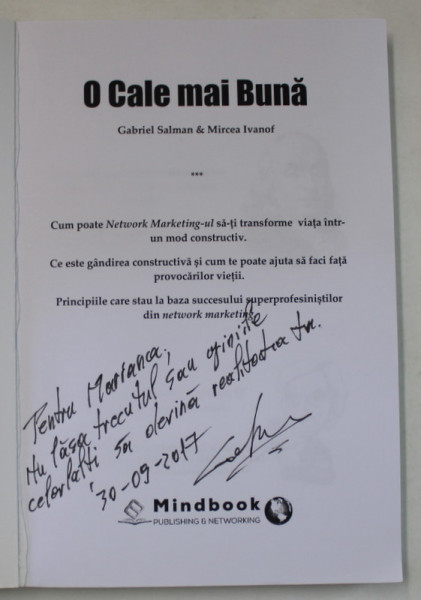 O Cale mai Bună
Gabriel Salman & Mircea Ivanof
***
Cum poate Network Marketing-ul să-ți transforme viața într-
un mod constructiv.
Ce este gândirea constructivă și cum te poate ajuta să faci față
provocărilor vieții.
Principiile care stau la baza succesului superprofesiniștilor
din network marketing.
Pentru Mariana,
Nu lăsa trecutul sau opiniile
celorlalți să devină realitatea ta.
30-09-2017
Mindbook
PUBLISHING & NETWORKING